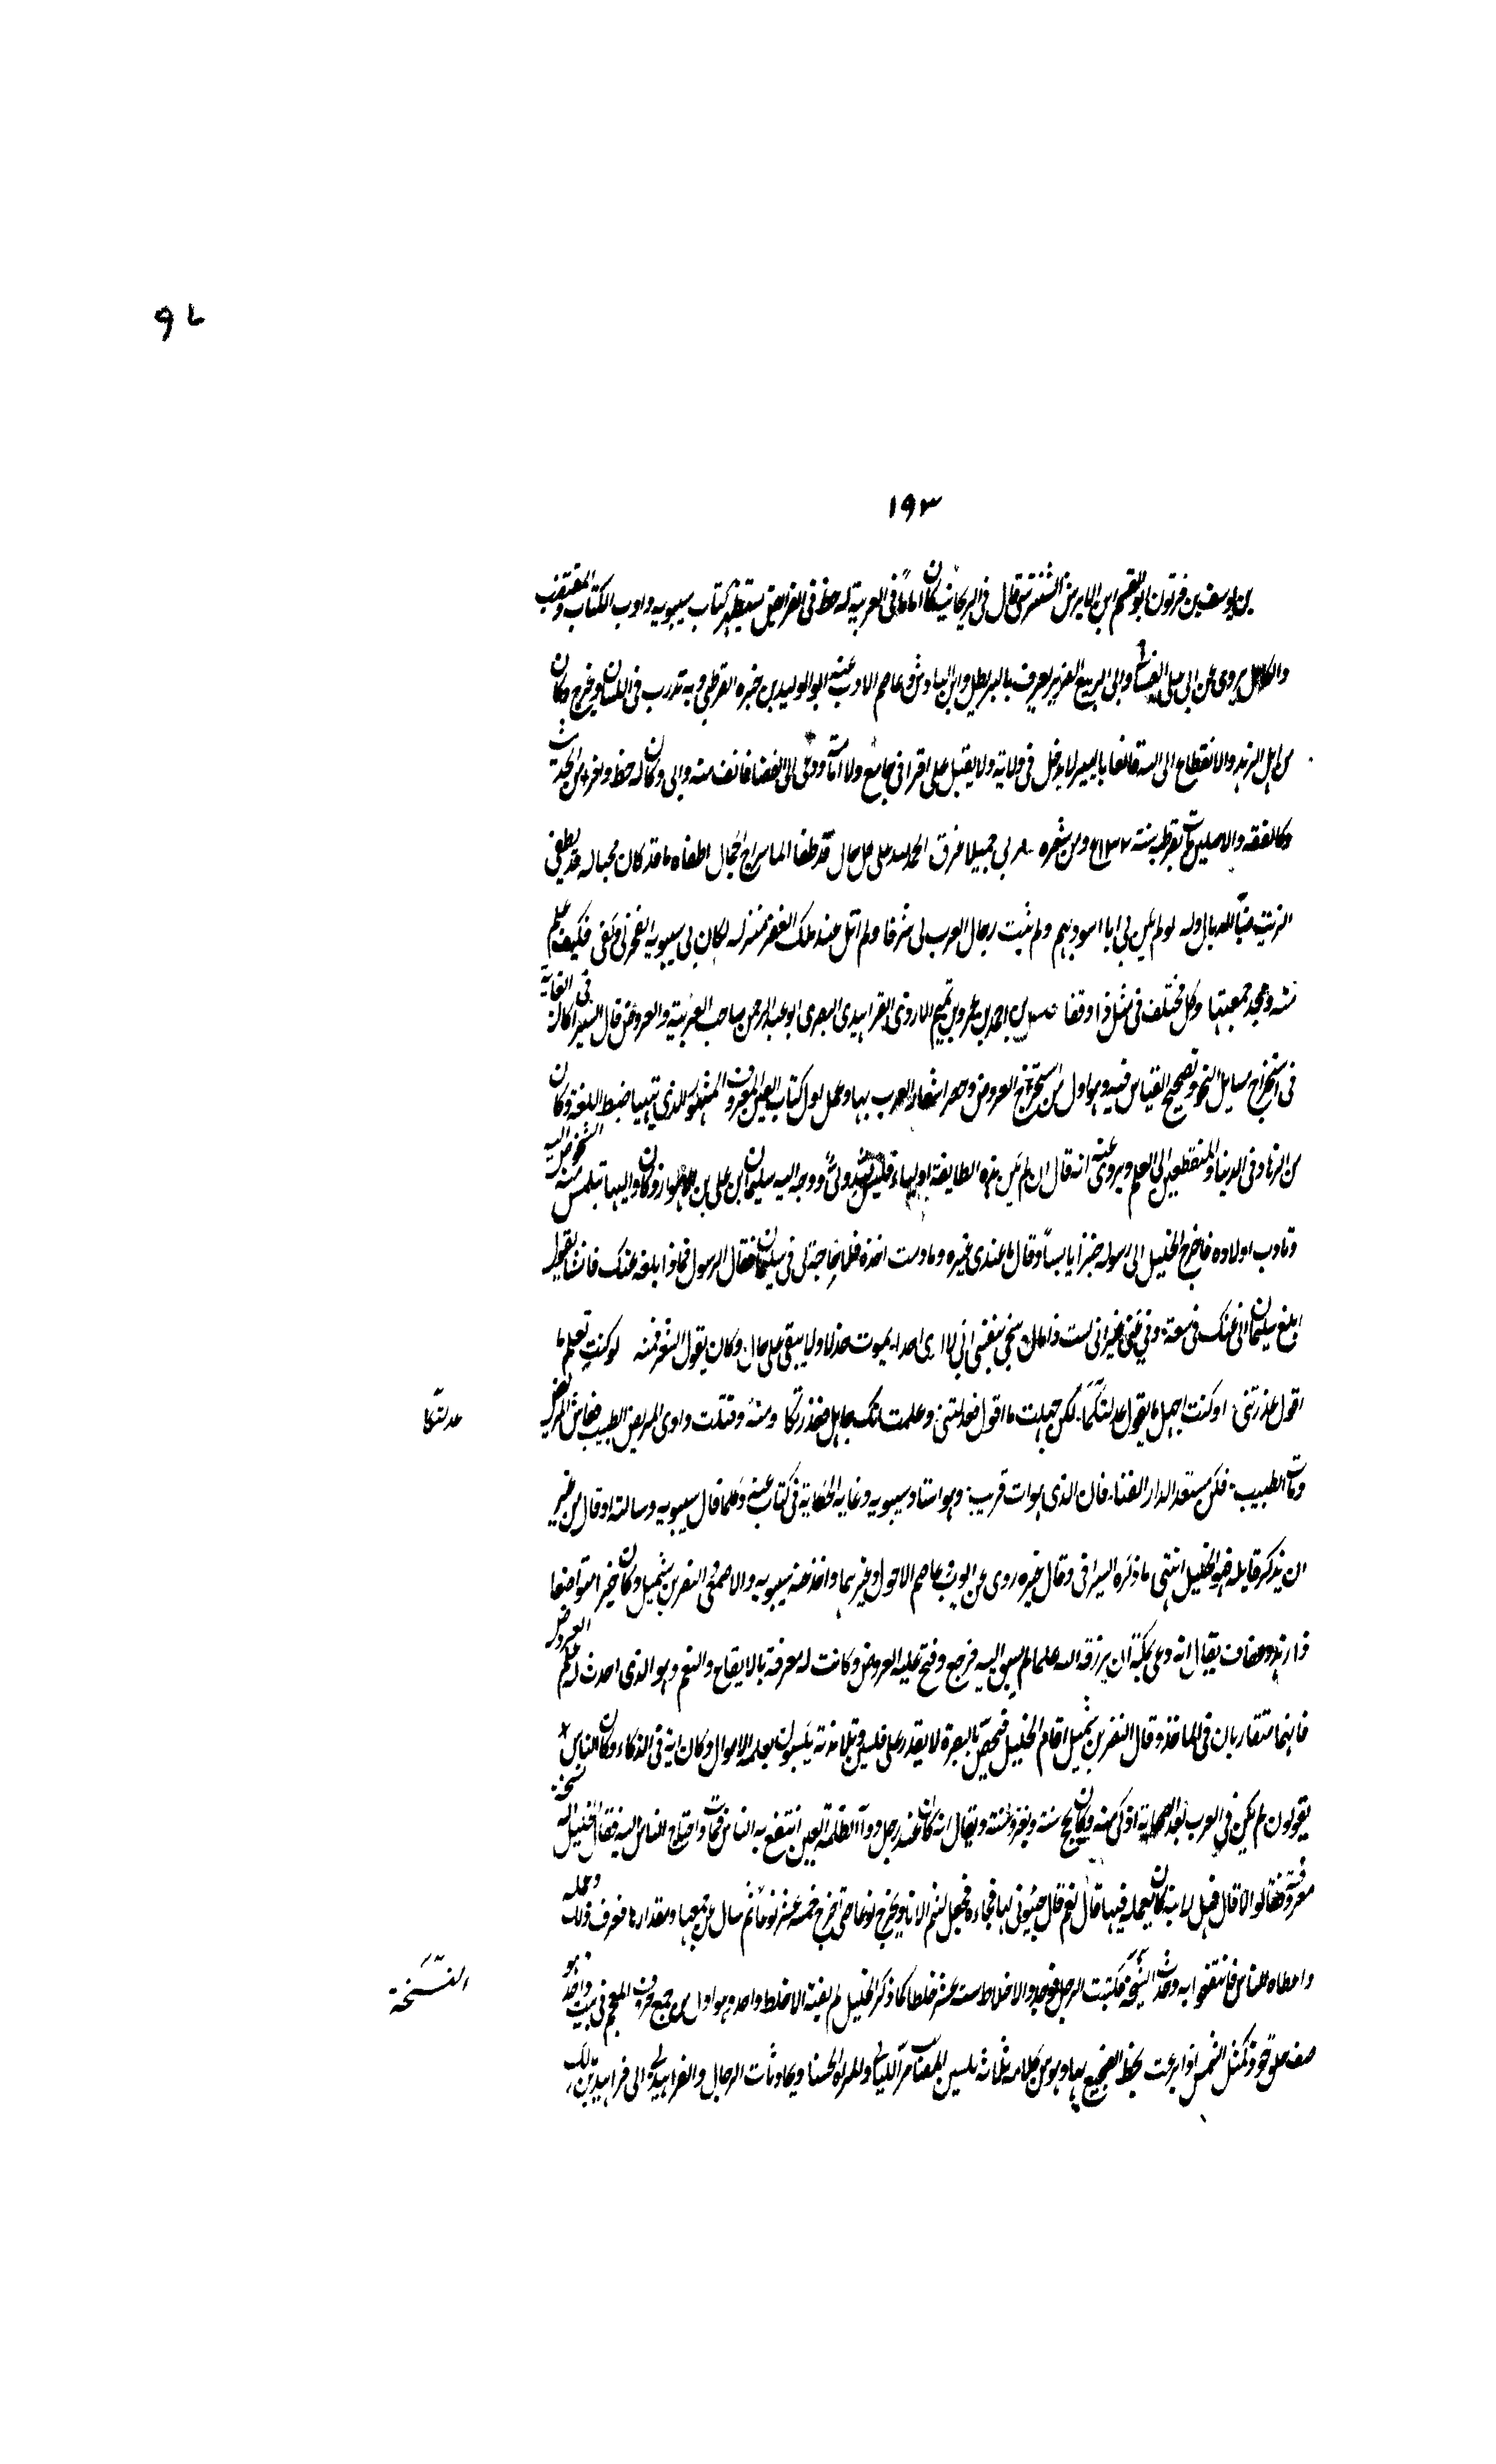 ٩٢
١٩٣
بن يوسف بن فرتون ابو القسم ابن الابرش الشنترينى قال فى الريحانة كان اماما فى العربية له حظ فى الفرائض يستظهر كتاب سيبويه وادب الكتاب والمقتضب
والكامل يروى عن ابى على الغسانى وابى الربيع الضرير يعرف بالبربطل وابن الباذش وعاصم الادب عنه ابو الوليد بن خيره القرطبى وبه تدرب فى اللسان وتخرج وكان
من اهل الزهد والانقطاع الى الله قانعا باليسير لا يدخل فى ولاية ولا يقبل على اقرا فى جامع ولا امامة ودعى الى القضا فانف منه وابى وكان له حظ وافر من الحديث
وكالفقه والاصلين مات بقرطبة سنة ٥٣٢ ومن شعره
الزيت ضياء الذبال وله لو لم يكن لى ابا اسود بهم ولم يثبت رجال العرب لى شرفا ولم انل عند ملك العصر منزلة لكان لى سيبويه الفخر لى وكفى فكيف علم
ومجد جمعتها وكل مختلف فى مثل ذا وقفا بن احمد بن عمرو بن تميم الازدى الفراهيدى البصرى ابو عبد الرحمن صاحب العربية والعروض قال السيرافى كان فى الغاية
فى استخراج مسايل النحو وتصحيح القياس فيه وهو اول من استخرج العروض وحصر اشعار العرب بها وعمل اول كتاب العين المعروف المشهور الذى به يتهيا ضبط اللغة وكان
من الزهاد فى الدنيا والمنقطعين الى العلم ويروى عنه انه قال ان لم يكن هذه الطايفة اولياء فليس لله ولى ووجه اليه سليمان بن على من الاهواز وكان واليها يلتمس منه الشخوص اليه
وتاديب اولاده فاخرج الخليل الى رسوله خبزا يابسا وقال ما عندى غيره وما دمت اجده فلا حاجة لى فى سليمان فقال الرسول فما ذا ابلغه عنك فانشا يقول
ابلغ سليمان انى عنك فى سعة وفى غنى غير انى لست ذا مال سخى بنفسى انى لا ارى احدا يموت هزلا ولا يبقى على حال وكان يقول الشعر فمنه لو كنت تعلم ما
اقول عذرتنى او كنت اجهل ما تقول عذلتكا لكن جهلت ما اقول فعذلتنى وعلمت انك جاهل فعذرتكا ومنه وقبلك داوى المريض الطبيب فعاش المريض
عدلتكا
ومات الطبيب فكن مستعدا لدار الفنا فان الذى هو ات قريب وهو استاد سيبويه وعامة الحكاية فى كتاب عنه وكلما قال سيبويه وسالته او قال من غير
ان يذكر قايله فهو الخليل انتهى ما ذكره السيرافى وقال غيره روى عن ايوب وعاصم الاحول وغيرهما واخذ عنه سيبويه والاصمعى والنضر بن شميل وكان خيرا متواضعا
ذا زهد وعفاف يقال انه دعى بمكة ان يرزقه الله علما لم يسبق اليه فرجع وفتح عليه العروض وكانت له معرفة بالايقاع والنغم وهو الذى احدث له علم العروض
فانهما متقاربان فى الماخذ وقال النضر بن شميل اقام الخليل فى خص بالبصرة لا يقدر على فلسين وتلامذته يكسبون بعلمه الاموال وكان اية فى الذكاء وكان الناس
يقولون لم يكن فى العرب بعد الصحابة اذكى منه وكان يحج سنة ويغزو سنة ويقال انه كان عند رجل دوا لظلمة العين ينتفع به الناس فمات واحتاج الناس اليه فقال الخليل اله
نسخة معروفة فقالوا لا قال فهل له انية كان يعمله فيها قال نعم قال جيئونى بها فجاءه فجعل يشم الانا ويخرج نوعا نوعا حتى اخرج خمسة عشر نوعا ثم سال عن جمعها ومقدارها فعرف ذلك وعمله
واعطاه للناس فانتفعوا به ثم وجدت النسخة فى كتب الرجل فوجدوا الاخلاط ستة عشر خلطا كما ذكر الخليل لم يفته الا خلط واحد وهو اول من جمع حروف المعجم فى بيت واحد هو
النسخة
صف خلق خود كمثل الشمس اذ بزغت يحظى الضجيع بها ومن كلامه ثلاثة تنسين المصائب مر الليالى والمراة الحسنا ومحادثات الرجال والفراهيدى الى فراهيد بن مالك